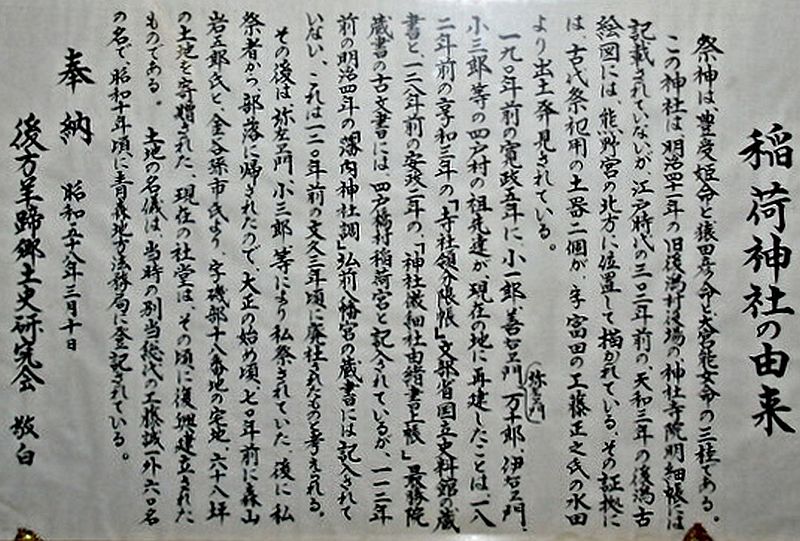 稲荷神社の由来
祭神は、豊受姫命と猿田彦命と大宮能女命の三柱である。
この神社は、明治四十一年の旧後潟村役場の神社寺院明細帳には
記載されていないが、江戸時代の三〇二年前の、天和三年の後潟古
絵図には、熊野宮の北方に位置して描かれている。その証拠に
は、古代祭祀用の土器二個が、字宮田の工藤正之氏の水田
より出土発見されている。
一九〇年前の寛政五年に、小一郎、善右エ門、万十郎、伊右エ門、
弥左エ門
小三郎等の四戸村の祖先達が、現在の地に再建したことは、一八
二年前の享和三年の「寺社領分限帳」文部省国立史料館の蔵
書と、一二八年前の安政二年の、「神社微細社由緒書上帳」最勝院
蔵書の古文書には、四戸橋村稲荷宮と記入されているが、一一二年
前の明治四年の「藩内神社調」弘前八幡宮の蔵書には記入されて
いない、これは一二〇年前の文久三年頃に廃社されたものと考えられる。
その後は、弥左エ門、小三郎、等により私祭されていた、後に私
祭者から、部落に帰されたので、大正の始め頃、七〇年前に森山
岩五郎氏と、金谷弥市氏より、字磯部十八番地の宅地、六十八坪
の土地を寄贈された、現在の社堂は、その頃に復興建立された
ものである。 土地の名儀は、当時の別当総代の工藤誠一外六〇名
の名で、昭和十年頃に青森地方法務局に登記されている。
奉納 昭和五十八年三月十日
後方羊蹄郷土史研究会 敬白